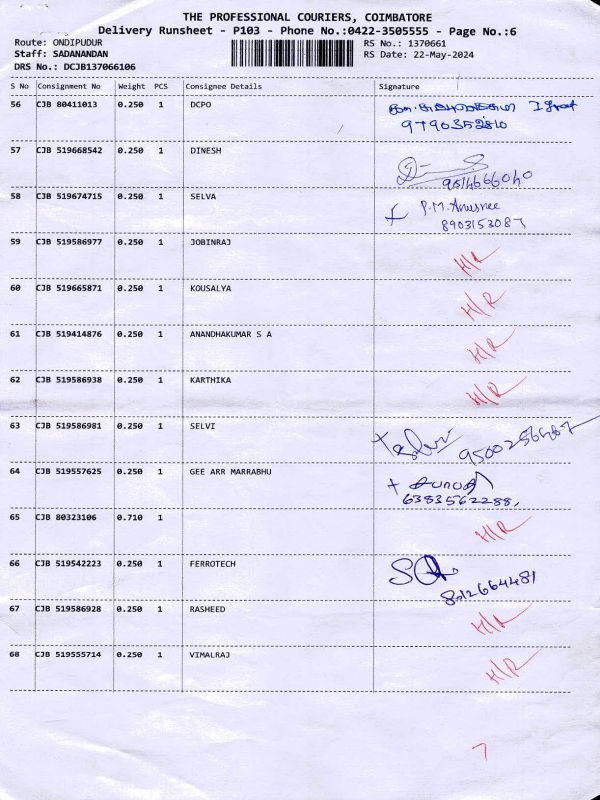 THE PROFESSIONAL COURIERS, COIMBATORE
Delivery Runsheet - P103 - Phone No.:0422-3505555 - Page No.:6
Route: ONDIPUDUR RS No.: 1370661
Staff: SADANANDAN RS Date: 22-May-2024
DRS No.: DCJB137066106
S No Consignment No Weight PCS Consignee Details Signature
56 CJB 80411013 0.250 1 DCPO
9790352810
57 CJB 519668542 0.250 1 DINESH
9514666040
58 CJB 519674715 0.250 1 SELVA P.M.Anusree
8903153087
59 CJB 519586977 0.250 1 JOBINRAJ H/R
60 CJB 519665871 0.250 1 KOUSALYA H/R
61 CJB 519414876 0.250 1 ANANDHAKUMAR S A H/R
62 CJB 519586938 0.250 1 KARTHIKA H/R
63 CJB 519586981 0.250 1 SELVI
64 CJB 519557625 0.250 1 GEE ARR MARRABHU
6383562288,
65 CJB 80323106 0.710 1 H/R
66 CJB 519542223 0.250 1 FERROTECH
8012664481
67 CJB 519586928 0.250 1 RASHEED H/R
68 CJB 519555714 0.250 1 VIMALRAJ H/R
7